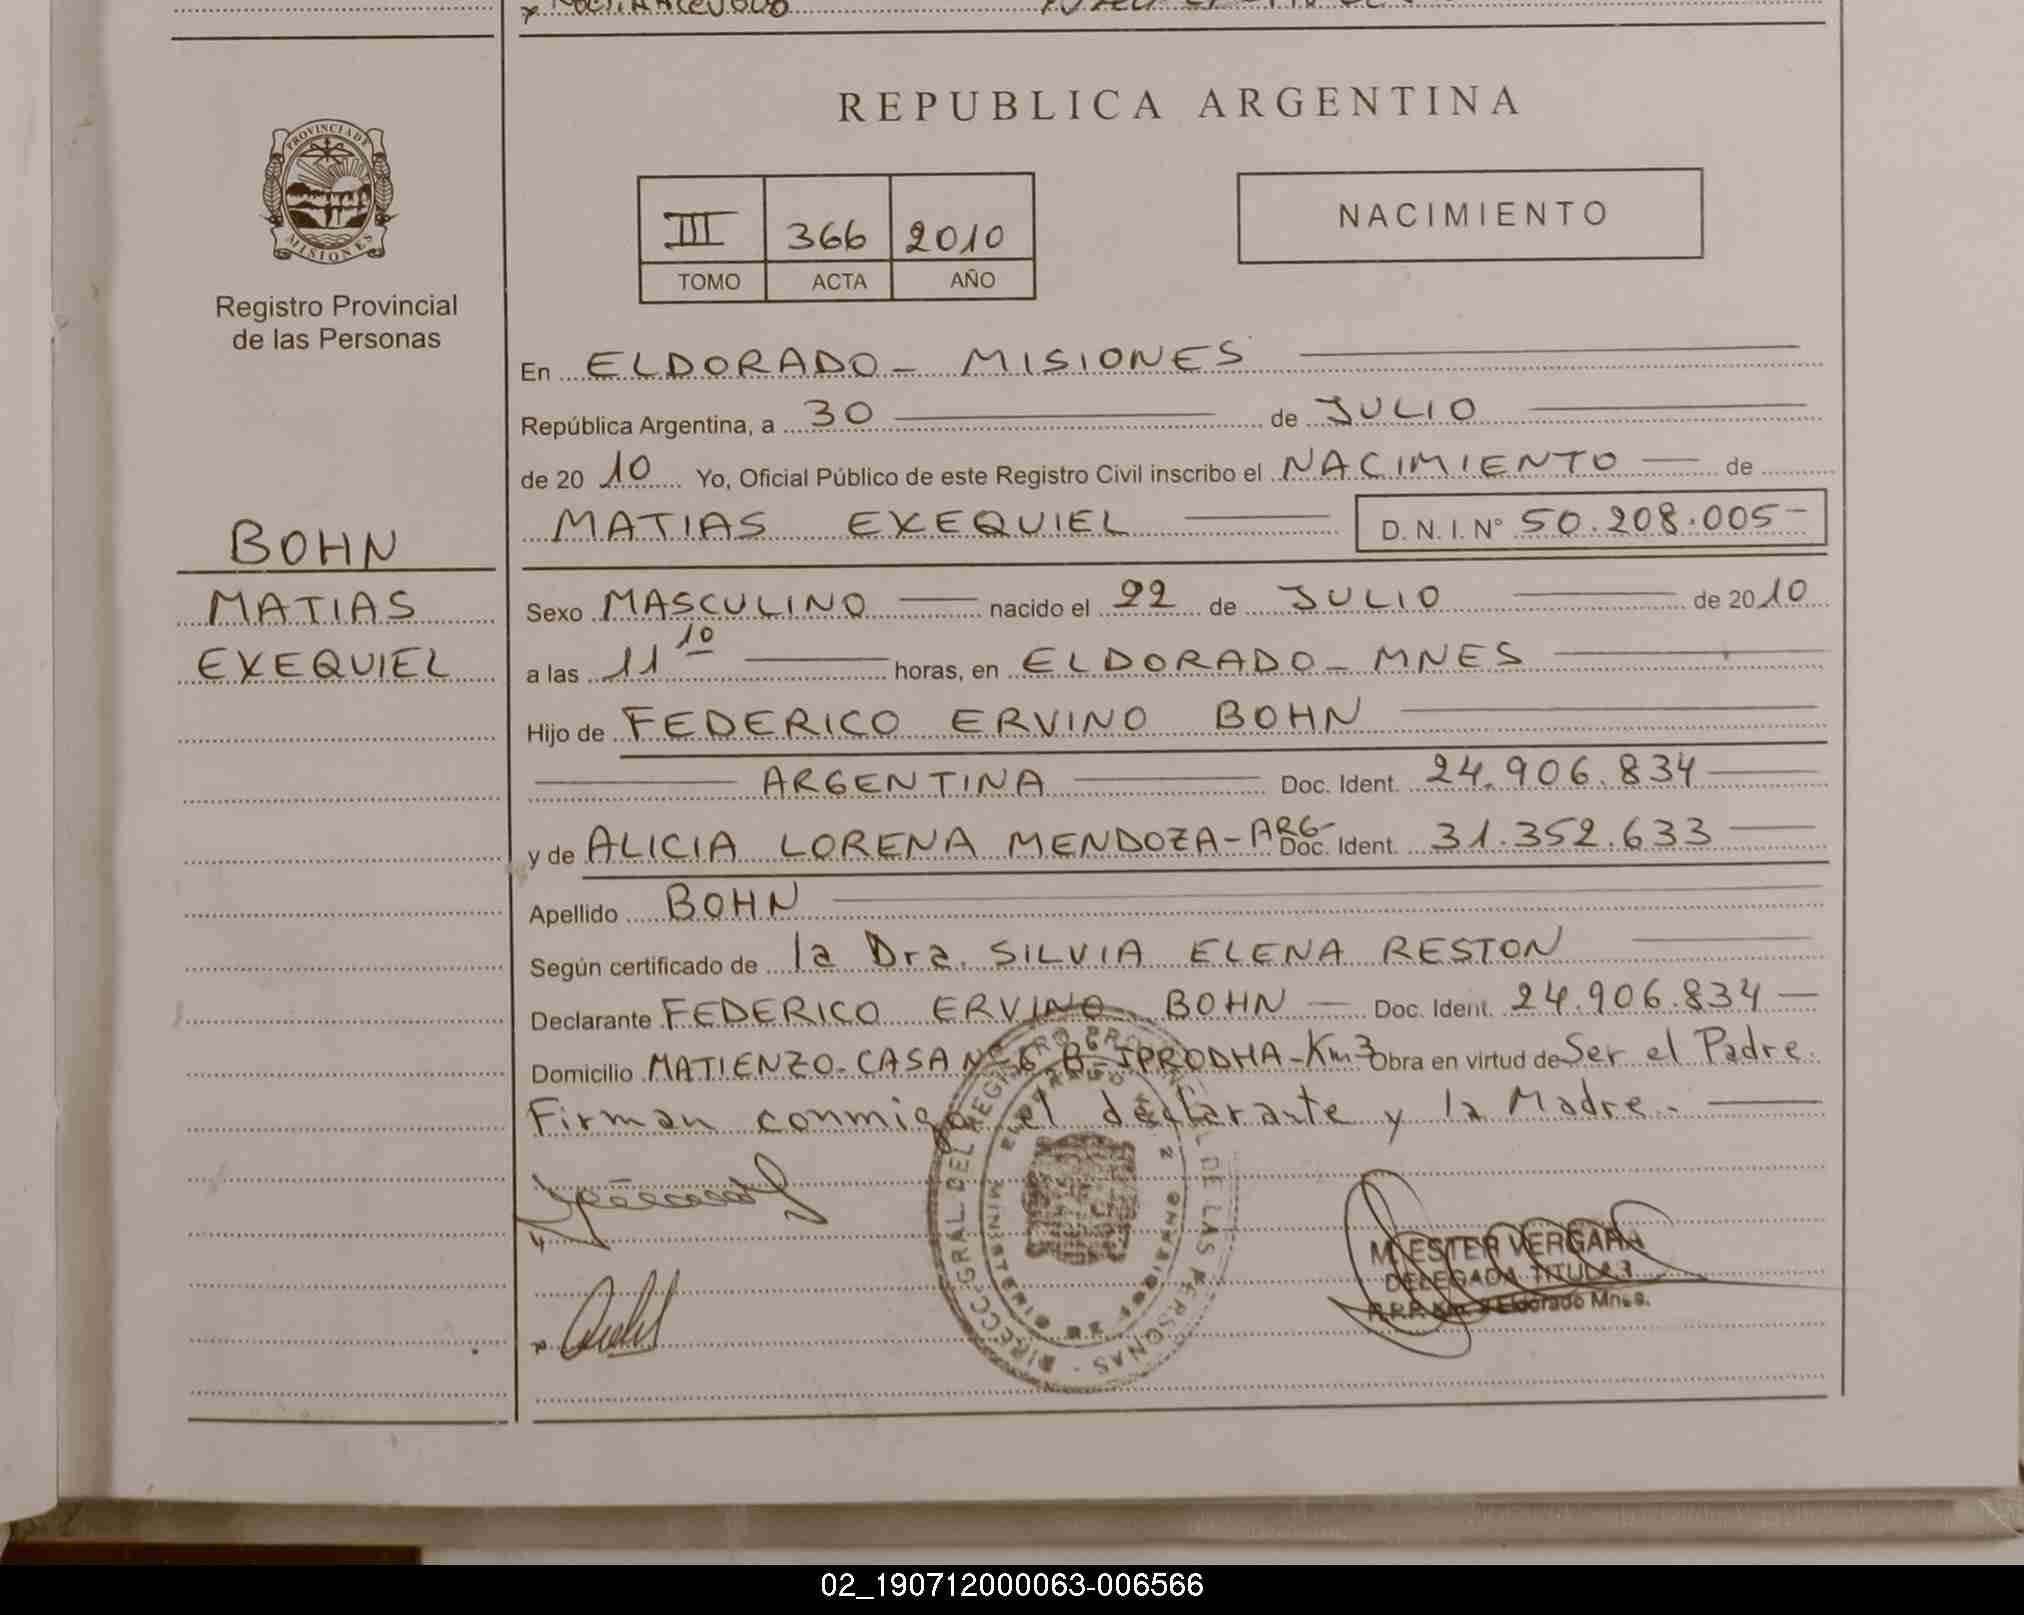 REPUBLICA ARGENTINA
PROVINCIA DE
MISIONES
Registro Provincial
de las Personas
III 366 2010
TOMO ACTA AÑO
NACIMIENTO
En ELDORADO - MISIONES
República Argentina, a 30 de JULIO
de 20 10 Yo, Oficial Público de este Registro Civil inscribo el NACIMIENTO de
MATIAS EXEQUIEL D. N. I. N° 50.208.005-
BOHN
MATIAS
EXEQUIEL
Sexo MASCULINO nacido el 22 de JULIO de 20 10
a las 11 10 horas, en ELDORADO - MNES
Hijo de FEDERICO ERVINO BOHN
ARGENTINA Doc. Ident. 24.906.834
y de ALICIA LORENA MENDOZA - ARG- Doc. Ident. 31.352.633
Apellido BOHN
Según certificado de la Dra. SILVIA ELENA RESTON
Declarante FEDERICO ERVINO BOHN Doc. Ident. 24.906.834
Domicilio MATIENZO - CASA N° 6 B- IPRODHA - Km 3 Obra en virtud de Ser el Padre.
Firman conmigo el declarante y la Madre.-
DIRECC. GRAL. DEL REGISTRO PROVINCIAL DE LAS PERSONAS
M. ESTER VERGARA
DELEGADA TITULAR
R.P.P. Km. Eldorado Mnes.
02_190712000063-006566